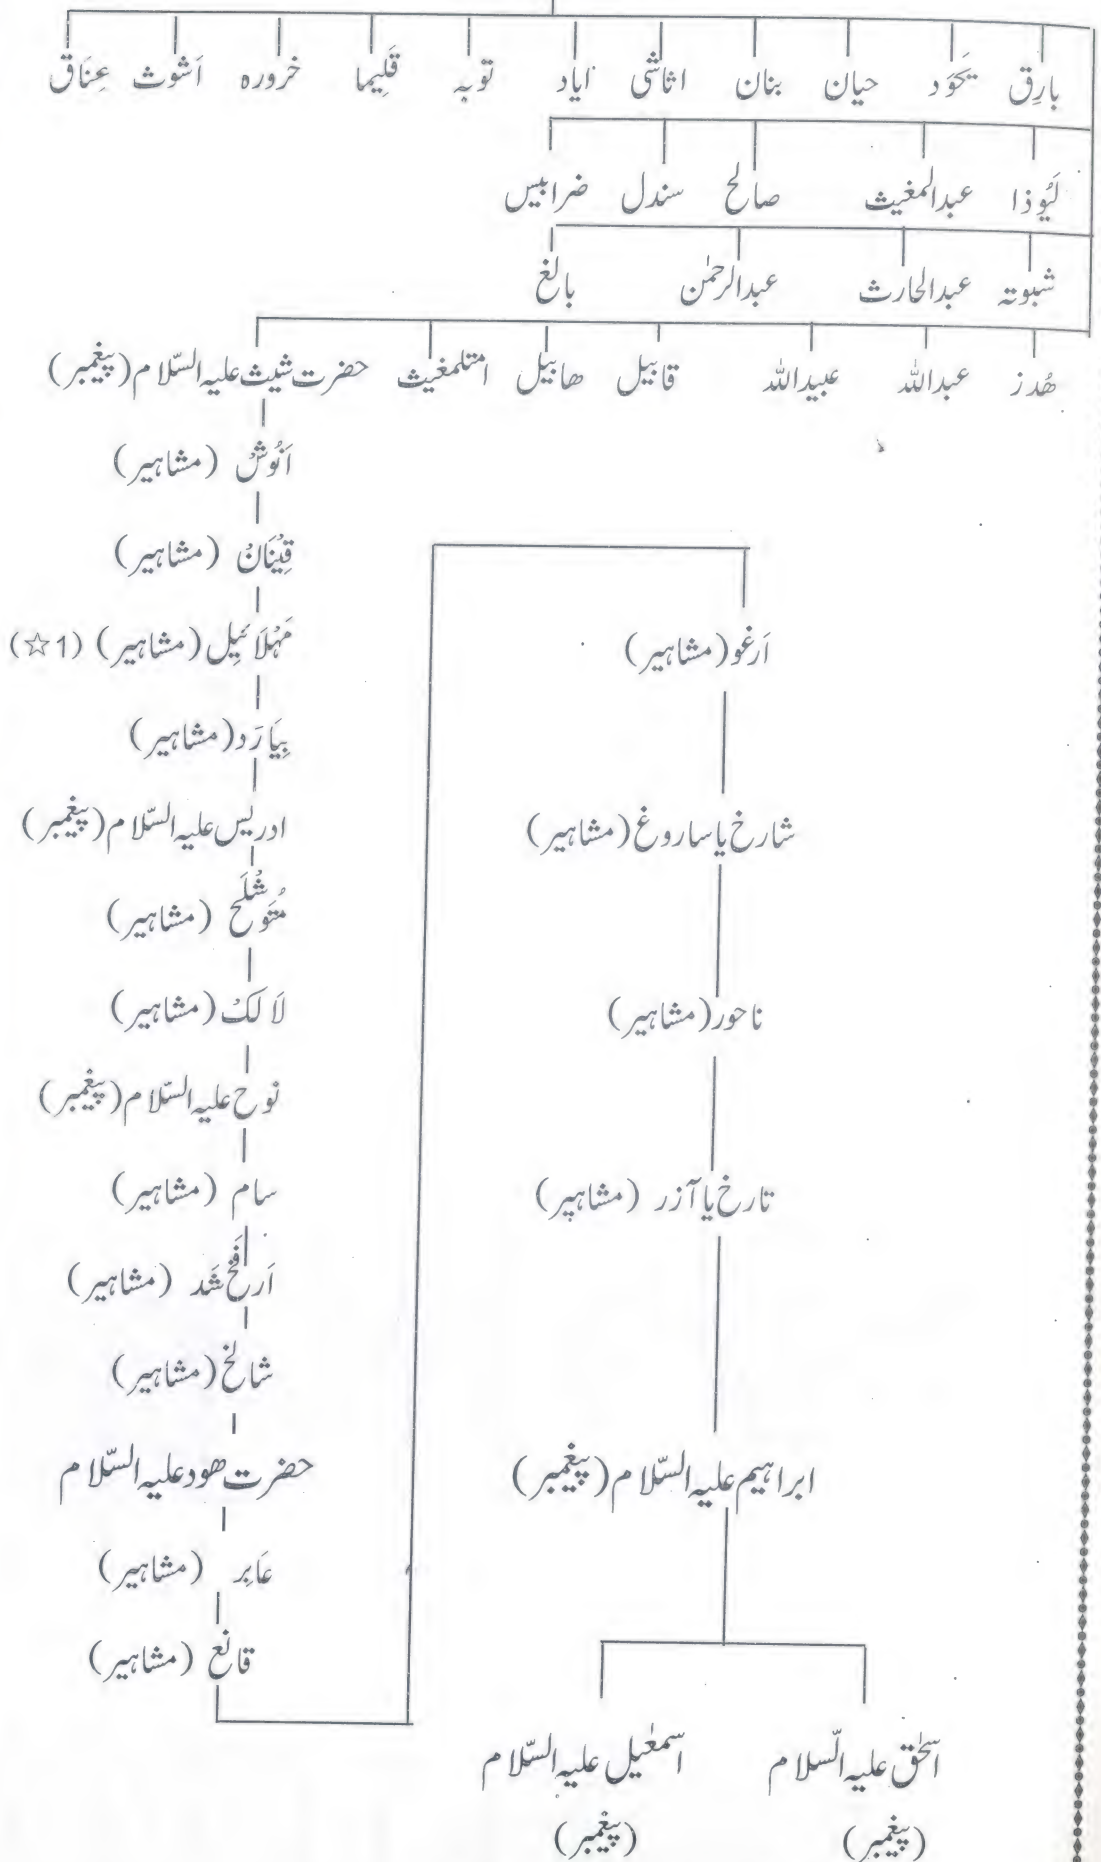 بارِق یَحَوَد حیان بنان اثاثی ایاد توبہ قَلِیما خرورہ اَشوث عِنَاق
لَیُوذا عبدالمغیث صالح سندل ضرابیس
شبوتہ عبدالحارث عبدالرحمٰن بالغ
ھُدز عبداللہ عبیداللہ قابیل ھابیل امتلمغیث حضرت شیث علیہ السّلام (پیغمبر)
اَنُوش (مشاہیر)
قِینَان (مشاہیر)
مَہْلَائیِل (مشاہیر) (1☆)
بِیَارَد (مشاہیر)
ادریس علیہ السّلام (پیغمبر)
مُتَوَشْلَح (مشاہیر)
لَالَکْ (مشاہیر)
نوح علیہ السّلام (پیغمبر)
سام (مشاہیر)
اَرفَخْشَد (مشاہیر)
شالخ (مشاہیر)
حضرت ھود علیہ السّلام
عَابِر (مشاہیر)
قانع (مشاہیر)
اَرغو (مشاہیر)
شارخ یا ساروغ (مشاہیر)
ناحور (مشاہیر)
تارخ یا آزر (مشاہیر)
ابراہیم علیہ السّلام (پیغمبر)
اسحٰق علیہ السّلام اسمٰعیل علیہ السّلام
(پیغمبر) (پیغمبر)